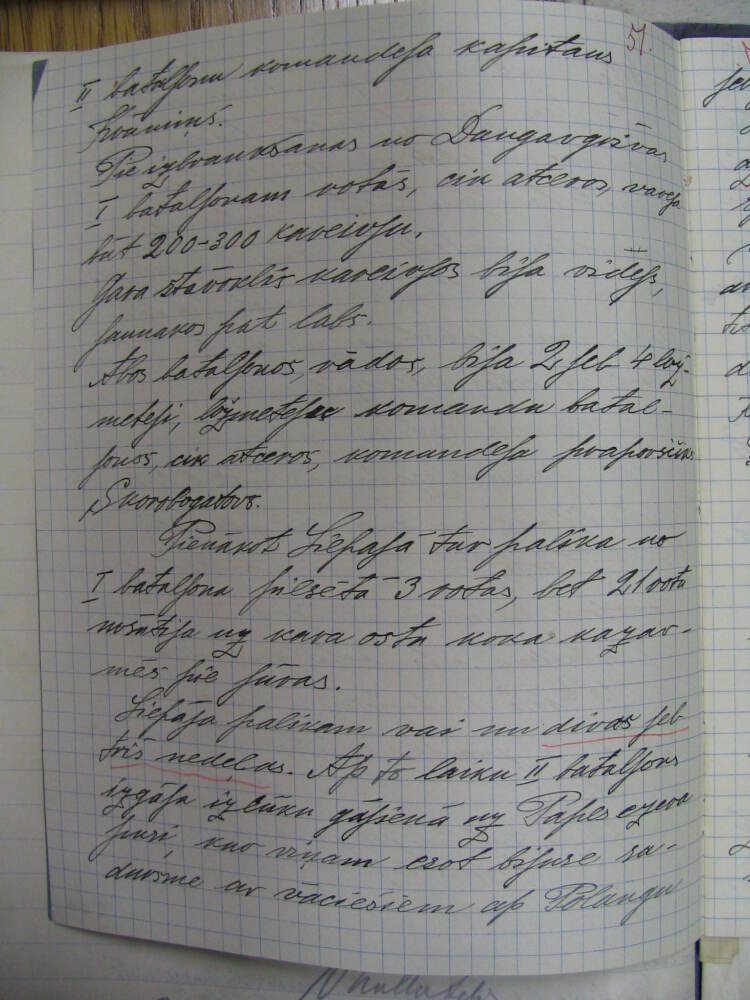 51.
II bataljonu komandēja kapteins
Krūmiņš.
Pie izbraukšanas no Daugavgrīvas
I bataljonam rotās, cik atceros, varēja
būt 200-300 kareivju.
Gara stāvoklis kareivjos bija vidējs,
jaunākos pat labs.
Abos bataljonos, rādās, bija 2 jeb 4 lož-
metēji, ložmetēju komandu batal-
jonos, cik atceros, komandēja praporščiks
Skorobogatovs.
Pienākot Liepājā tur palika no
I bataljona pilsētā 3 rotas, bet 21 rotu
nosūtīja uz kara ostu koka kazar-
mēs pie jūras.
Liepājā palikām vai nu divas jeb
trīs nedēļas. Ap to laiku II bataljons
izgāja izlūku gājienā uz Papes ezera
pusi, kur viņam esot bijuse sa-
dursme ar vāciešiem ap Polangu